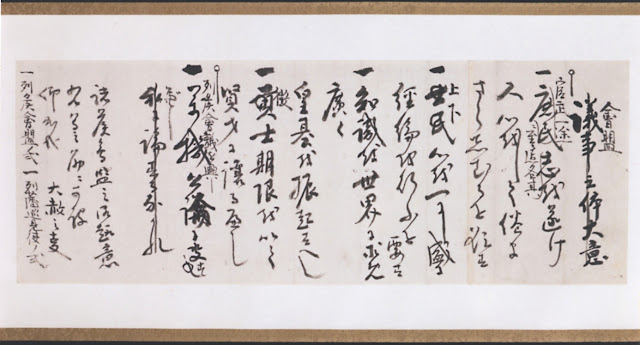 會盟
議事之体大意
官武一途
一庶民志を遂け
至る迄各其
人心をして倦ま
さらしむるを欲す
上下
一士民心を一にし盛に
経綸を行ふを要す
一知識を世界に求め
廣く
皇基を振起すへし
徴
一貢士期限を以て
賢才に譲るへし
列侯會議を興し
一万機公論に決し
私に論するなかれ
諸侯會盟之御趣意
右等之筋に可被
仰出哉 大赦之事
一列侯會盟ノ式 一列藩巡見使ノ式